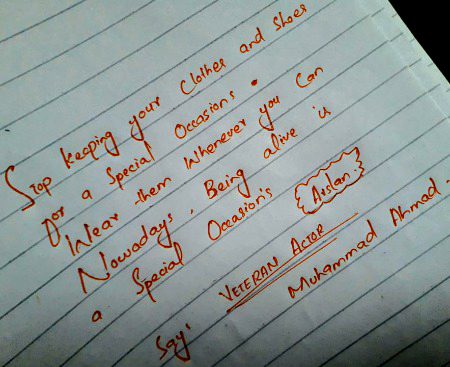 Stop keeping your Clothes and Shoes
for a Special Occasions.
Wear them Whenever you Can
Nowadays, Being alive is
a Special Occasion's
Arslan..
Say:
VETERAN ACTOR
Muhammad Ahmad.